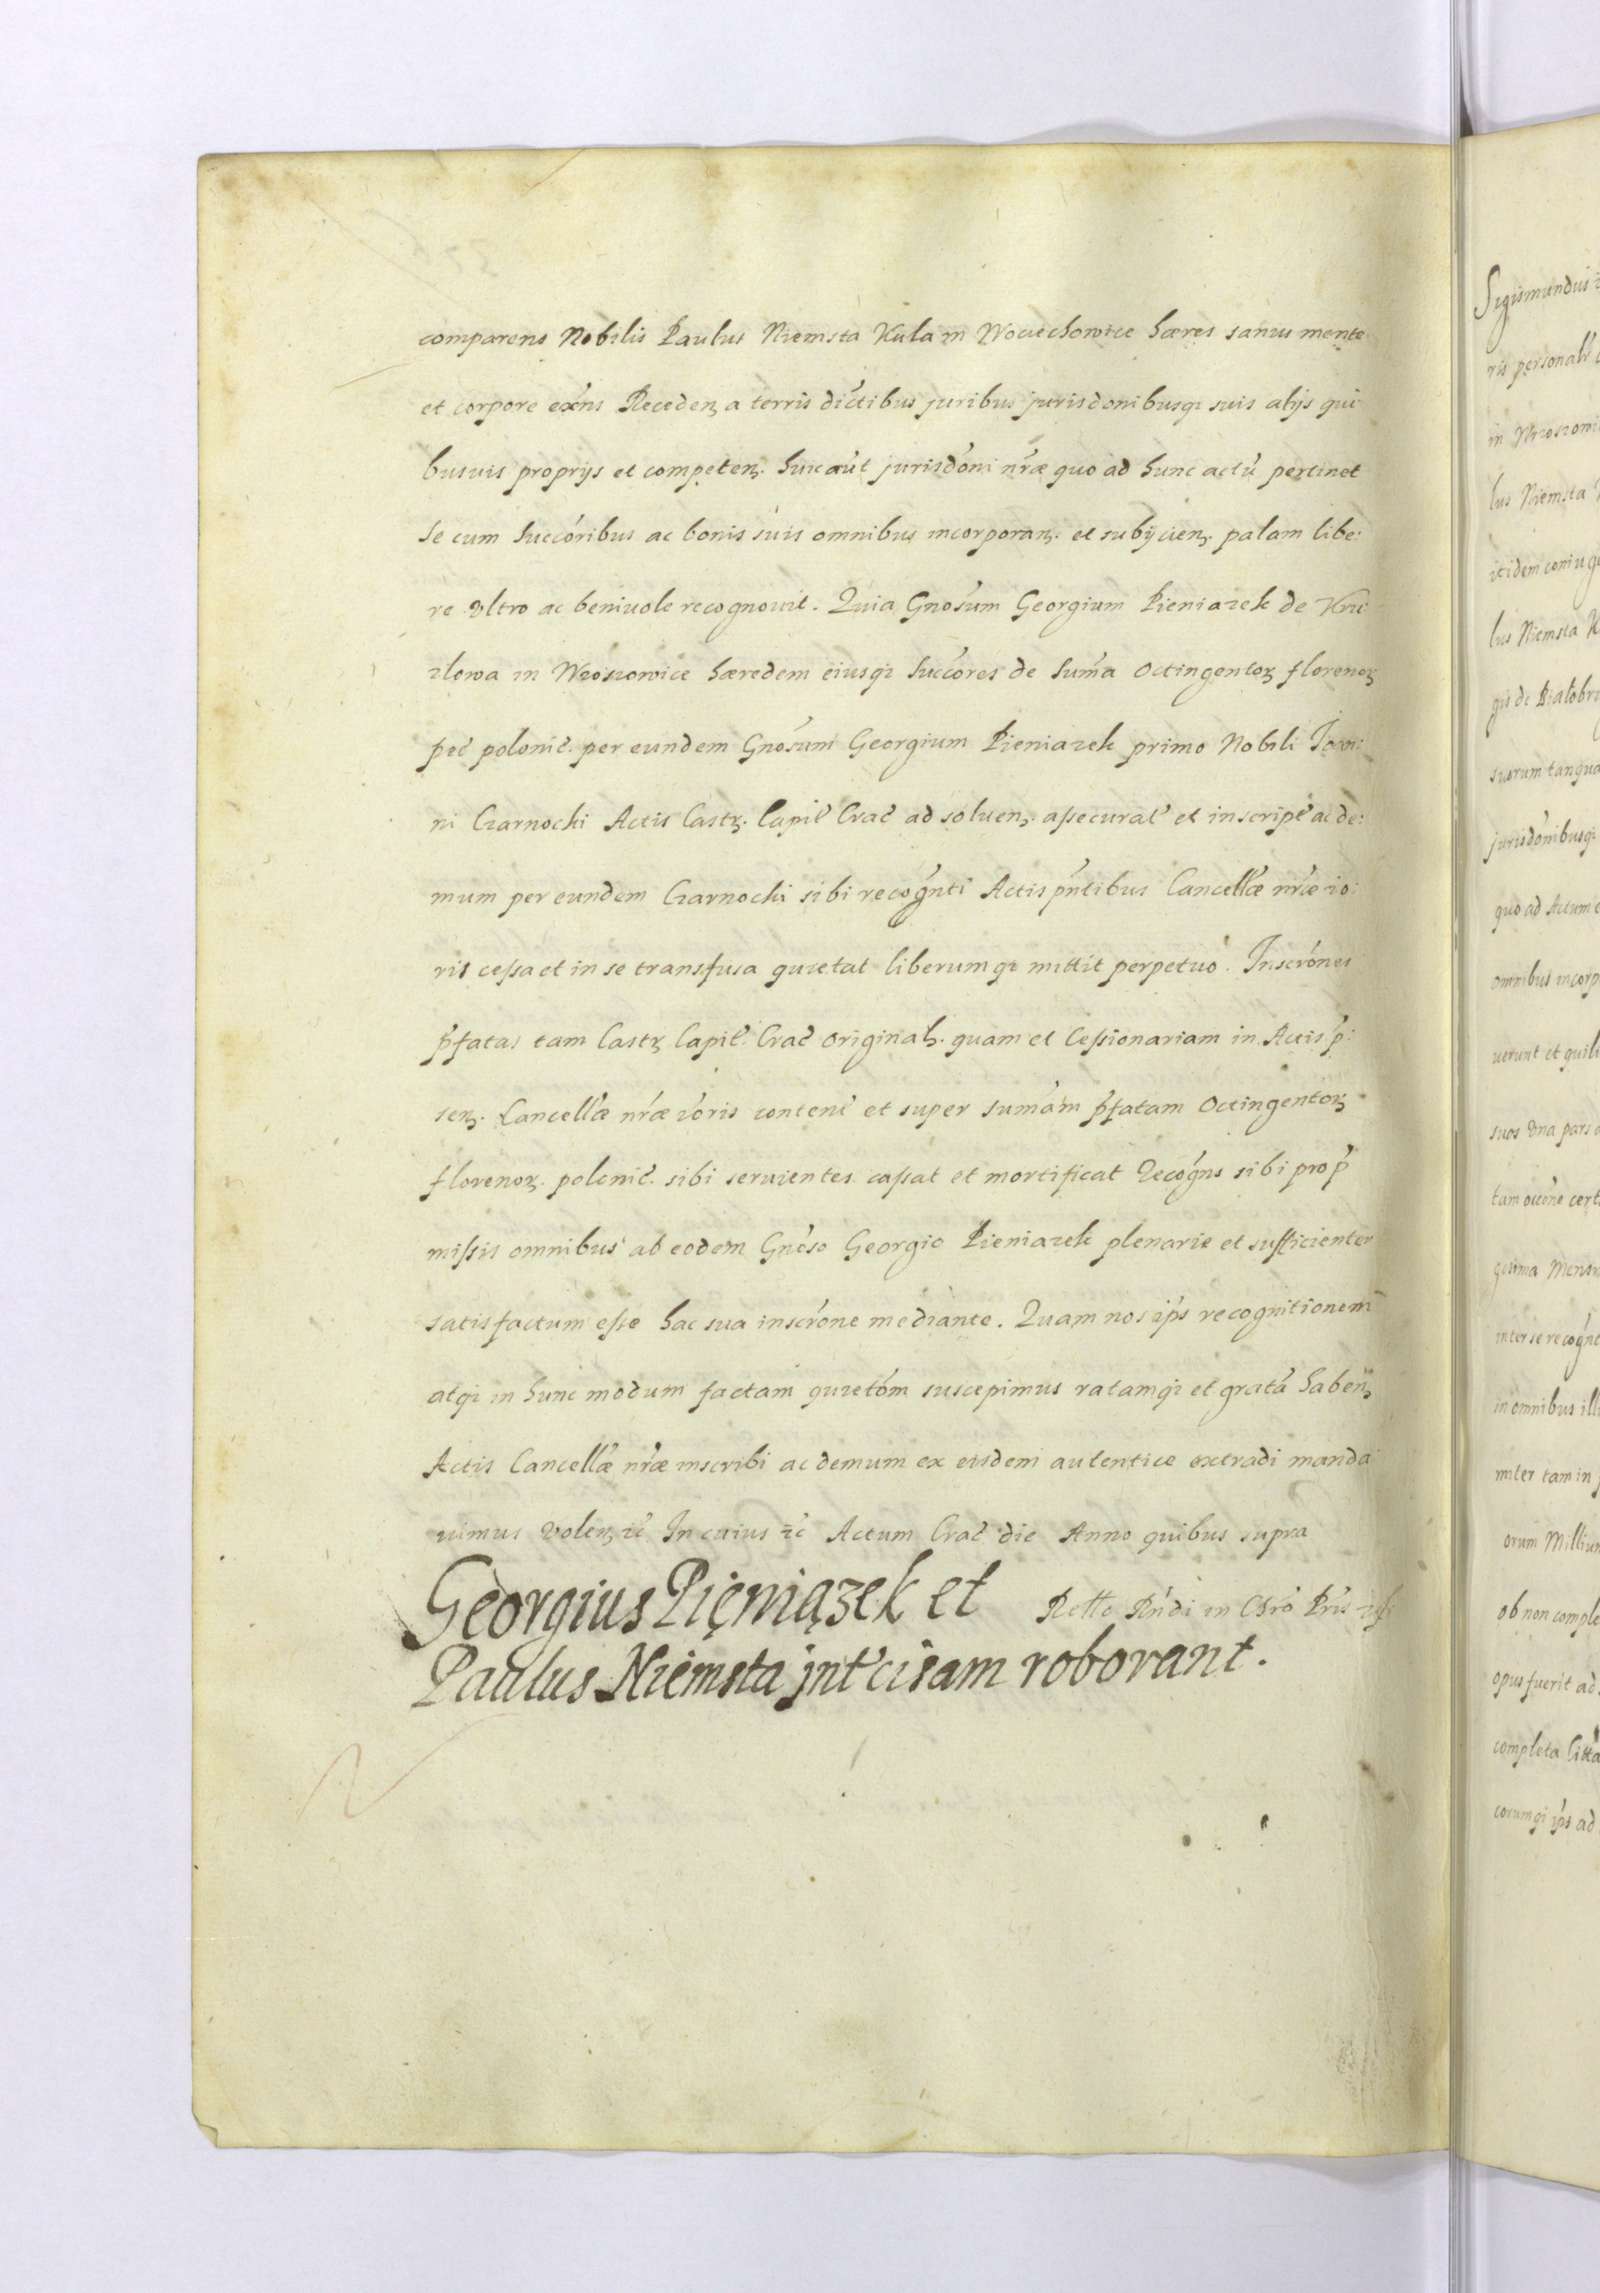 comparens Nobilis Paulus Niemsta Kula in Wociechowice hæres sanus mente
et corpore exn̄s Recedenꝫ a terris dictibus juribus jurisdonibusqꝫ suis alijs qui
busuis proprijs et competenꝫ. huic aut̄ jurisdoni nr̄æ quo ad hunc actū pertinet
se cum Succoribus ac bonis suis omnibus incorporanꝫ. et subijcienꝫ. palam libe:
re vltro ac beniuole recognouit. Quia Gnosum Georgium Pieniazek de Kru
zlowa in Wroszowice hæredem eiusqꝫ Succores de Sum̄a Octingentoꝝ florenoꝝ
pec̄ polonic̄. per eundem Gnosum Georgium Pieniazek primo Nobili Joan:
ni Czarnocki Actis Castꝝ. Capit̄ Crac̄ ad soluenꝫ. assecurat̄ et inscript̄ ac de:
mum per eundem Czarnocki sibi recognt̄i Actis pn̄tibus Cancellæ nr̄æ io:
ris cessa et in se transfusa quietat liberumqꝫ mittit perpetuo. Inscrones
p̄fatas tam Castꝝ Capit̄. Crac̄ originalꝫ. quam et Cessionariam in Actis p̄:
senꝫ. Cancellæ nr̄æ roris content̄ et super sum̄am p̄fatam Octingentoꝝ
florenoꝝ. polonic̄. sibi seruientes cassat et mortificat Recogn̄s sibi pro p̄
missis omnibus ab eodem Gnoso Georgio Pieniazek plenarie et sufficienter
satisfactum esse hac sua inscrone mediante. Quam nos ip̄s recognitionem
atqꝫ in hunc modum factam quietom suscepimus ratamqꝫ et gratā habenꝫ
Actis Cancellæ nr̄æ inscribi ac demum ex eisdem autentice extradi manda
uimus volenꝫ ꝛc̄ In cuius ꝛc̄ Actum Crac̄ die Anno quibus supra
Georgius Pięniązek et Retto Rn̄di in Chro Pris
Paulus Niemsta jnt̄cisam roborant.
Sigismundus
ris personalr̄
in Wroszowi
lus Niemsta
itidem coniuge
lus Niemsta K
gis de Białobrz
suorum tanqua
jurisdonibusqꝫ
quo ad Actum
omnibus incorp
uerunt et quili
suos vna pars
tam occōne cert
gesima Mens
inter se recognt
in omnibus ill
miter tam in
orum Milliu
ob non comple
opus fuerit ad
completa litta
eorumqꝫ ip̄s ad